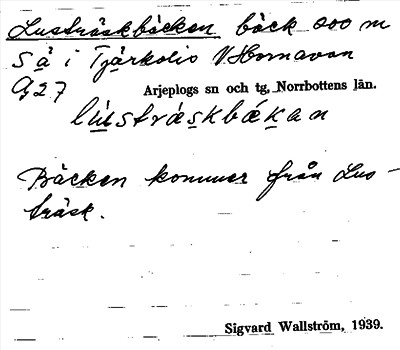 Lusträskbäcken bäck 800 m
S å i Tjärkolis V Hornavan
G27 Arjeplogs sn och tg, Norrbottens län.
lusträskbäkan
Bäcken kommer från Lus-
träsk.
Sigvard Wallström, 1939.